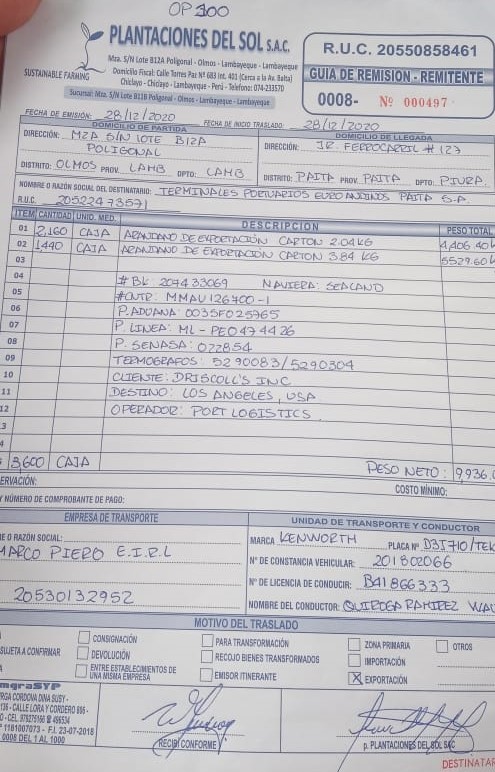 OP 300
PLANTACIONES DEL SOL S.A.C.
SUSTAINABLE FARMING
Mza. S/N Lote B12A Poligonal - Olmos - Lambayeque - Lambayeque
Domicilio Fiscal: Calle Torres Paz Nº 683 Int. 401 (Cerca a la Av. Balta)
Chiclayo - Chiclayo - Lambayeque - Perú - Telefono: 074-233570
Sucursal: Mza. S/N Lote B12B Poligonal - Olmos - Lambayeque - Lambayeque
R.U.C. 20550858461
GUIA DE REMISION - REMITENTE
0008- Nº 000497
FECHA DE EMISIÓN: 28/12/2020 FECHA DE INICIO TRASLADO: 28/12/2020
DOMICILIO DE PARTIDA DOMICILIO DE LLEGADA
DIRECCIÓN: MZA S/N LOTE B12A DIRECCIÓN: JR. FERROCARRIL # 127
POLIGONAL
DISTRITO: OLMOS PROV. LAMB DPTO: LAMB DISTRITO: PAITA PROV. PAITA DPTO: PIURA
NOMBRE O RAZÓN SOCIAL DEL DESTINATARIO: TERMINALES PORTUARIOS EUROANDINOS PAITA S.A.
R.U.C. 20522473571
ITEM CANTIDAD UNID. MED. DESCRIPCION PESO TOTAL
01 2,160 CAJA ARANDANO DE EXPORTACIÓN CARTON 2.04KG 4,406.40
02 1,440 CAJA ARANDANO DE EXPORTACIÓN CARTON 3.84 KG 5529.60
03
04 # BK 207433069 NAVIERA: SEALAND
05 #CNTR: MMAU126700-1
06 P. ADUANA: 0035F025765
07 P. LINEA: ML-PE0474426
08 P. SENASA: 072854
09 TERMOGRAFOS: 5290083/5290304
10 CLIENTE: DRISCOLL'S INC
11 DESTINO: LOS ANGELES, USA
12 OPERADOR: PORT LOGISTICS
3
4
3,600 CAJA PESO NETO: 9,936.
ERVACIÓN: COSTO MÍNIMO:
Y NÚMERO DE COMPROBANTE DE PAGO:
EMPRESA DE TRANSPORTE UNIDAD DE TRANSPORTE Y CONDUCTOR
E O RAZÓN SOCIAL: MARCA KENWORTH PLACA Nº D3I710/TEK
MARCO PIERO E.I.R.L Nº DE CONSTANCIA VEHICULAR: 201802066
Nº DE LICENCIA DE CONDUCIR: B41866333
20530132952 NOMBRE DEL CONDUCTOR: QUIROGA RAMIREZ WAL
MOTIVO DEL TRASLADO
CONSIGNACIÓN PARA TRANSFORMACIÓN ZONA PRIMARIA OTROS
SUJETA A CONFIRMAR DEVOLUCIÓN RECOJO BIENES TRANSFORMADOS IMPORTACIÓN
A ENTRE ESTABLECIMIENTOS DE UNA MISMA EMPRESA EMISOR ITINERANTE X EXPORTACIÓN
mgraSYP
RGA CORDOVA DINA SUSY -
136 - CALLE LORA Y CORDERO 895 -
- F.I. 23-07-2018
0008 DEL 1 AL 1000
RECIBI CONFORME
p. PLANTACIONES DEL SOL SAC
DESTINATAR